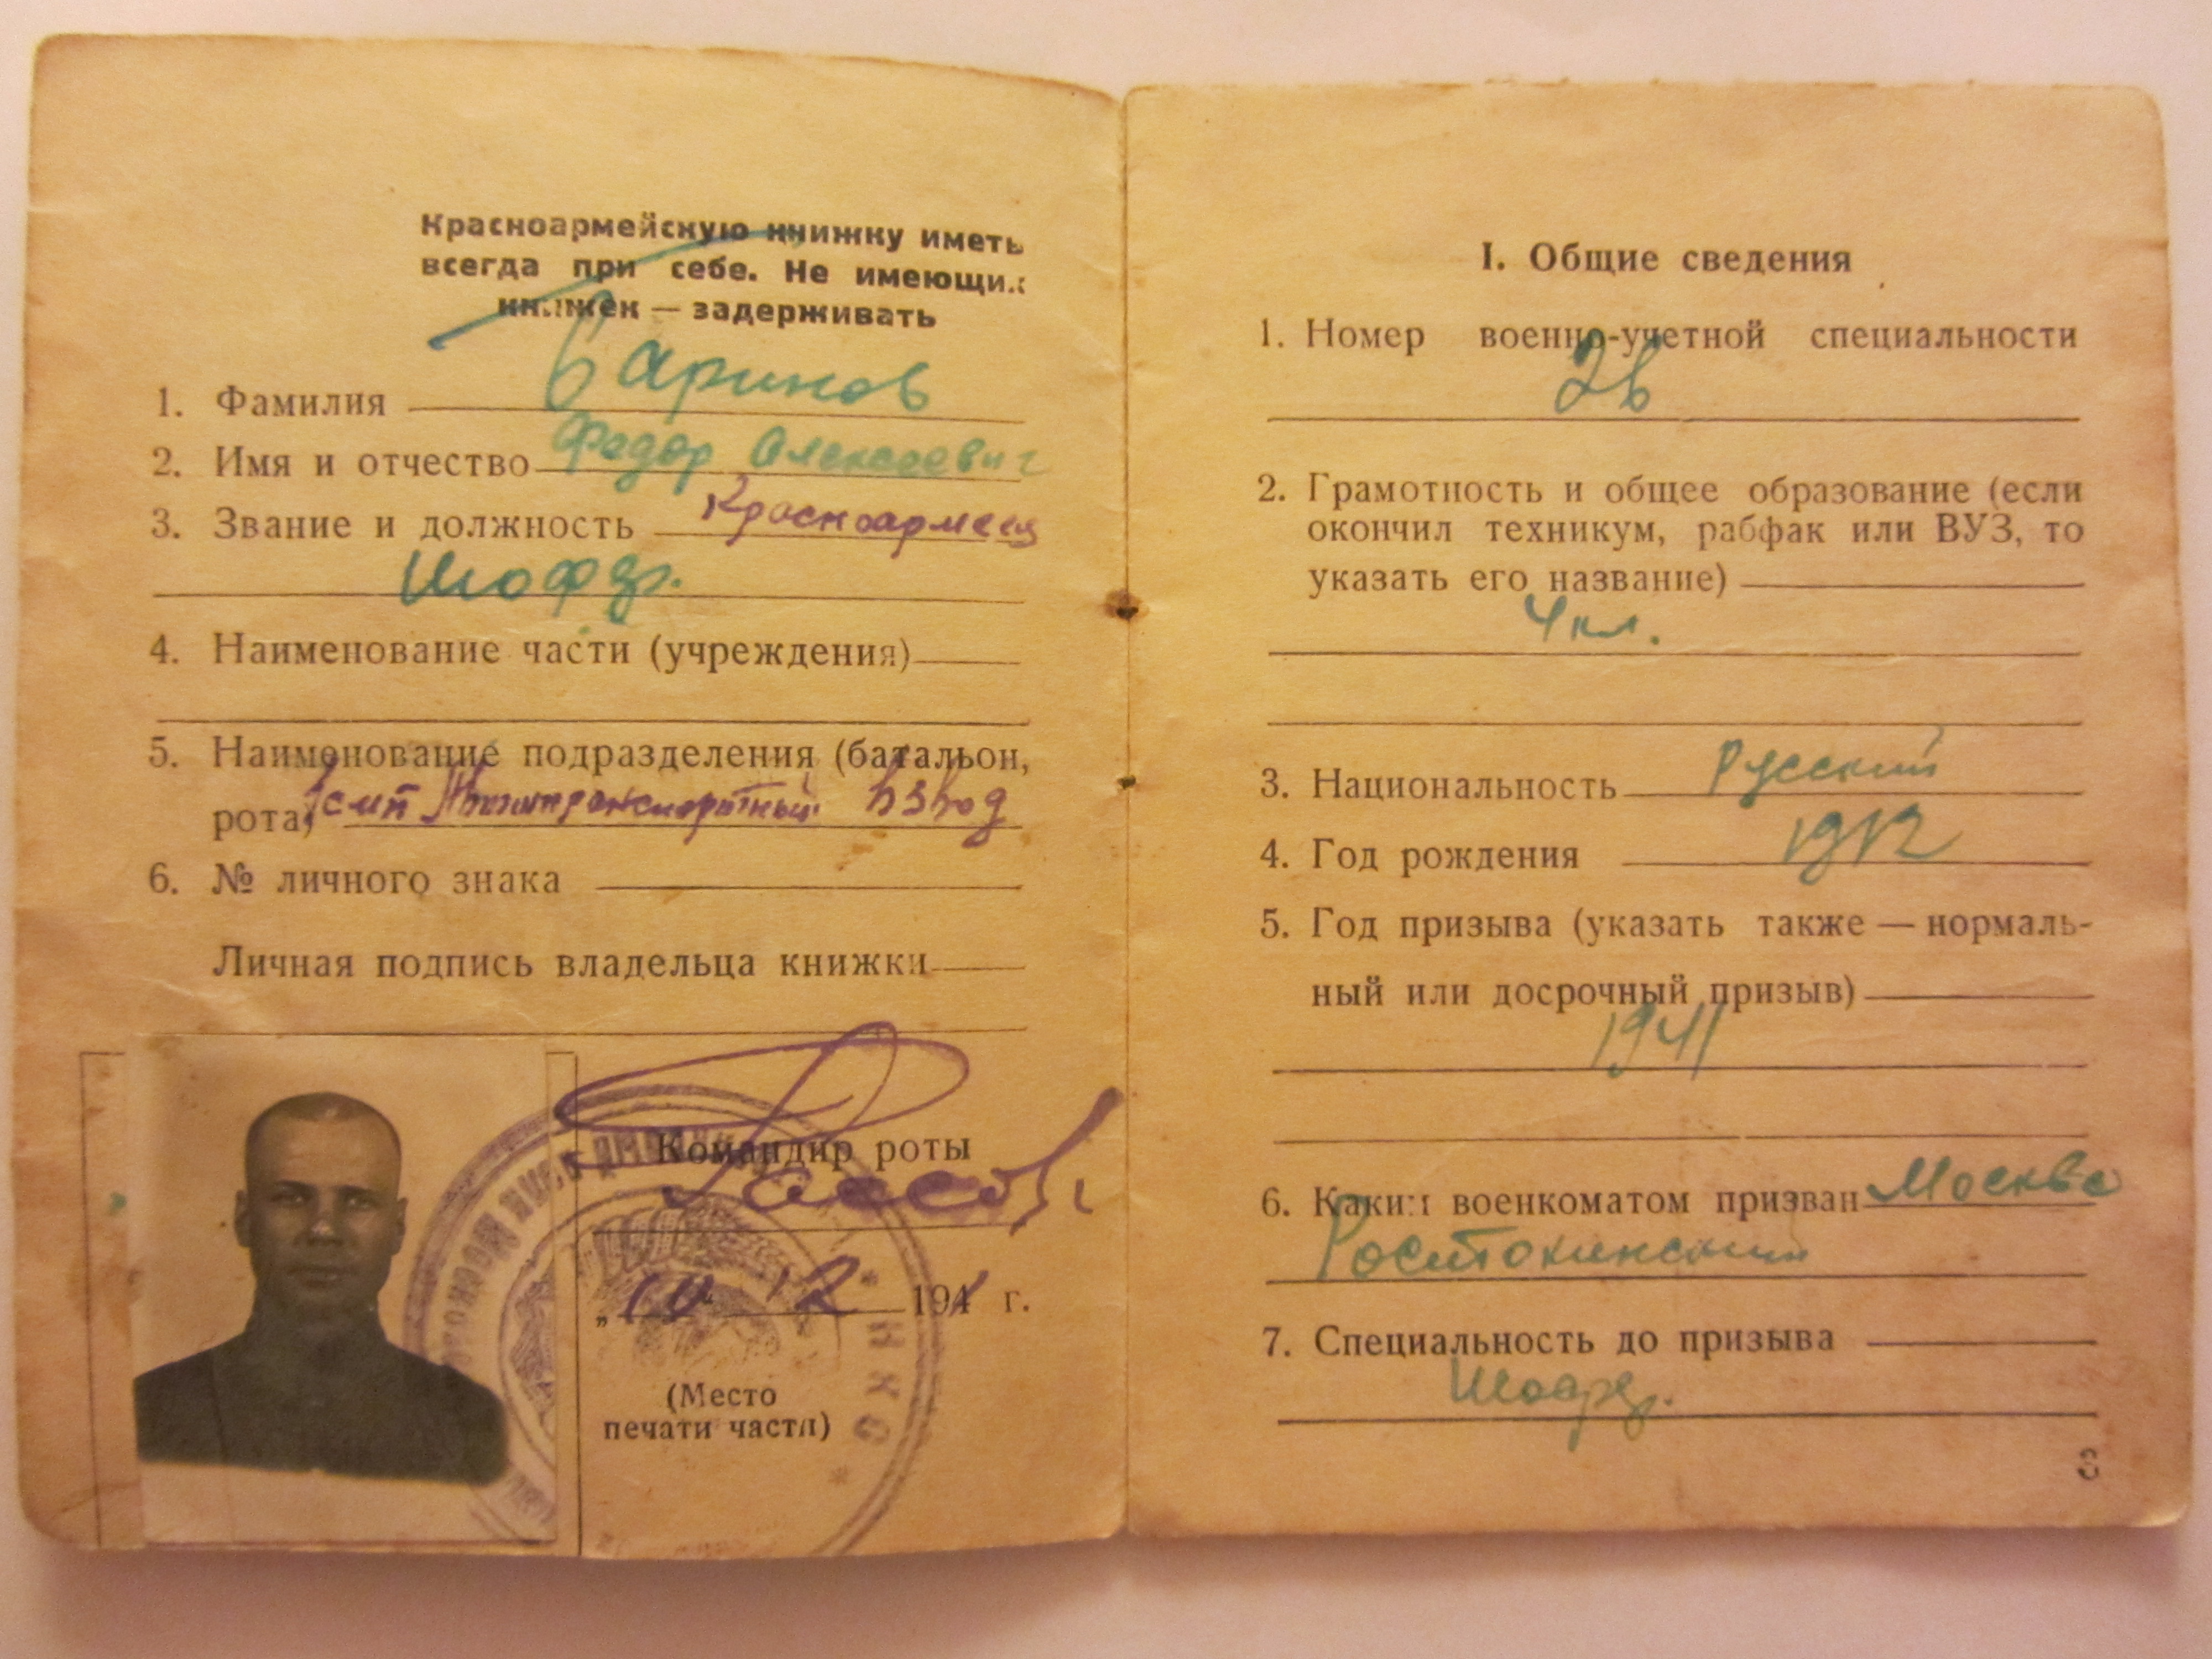 Красноармейскую книжку иметь
всегда при себе. Не имеющих
книжек — задерживать
1. Фамилия Баринов
2. Имя и отчество Федор Алексеевич
3. Звание и должность Красноармеец
Шофер.
4. Наименование части (учреждения)
5. Наименование подразделения (батальон,
рота) Автотранспортный взвод
6. № личного знака
Личная подпись владельца книжки
Командир роты
„10“ 12 1941 г.
(Место
печати части)
* НКО *
I. Общие сведения
1. Номер военно-учетной специальности
26
2. Грамотность и общее образование (если
окончил техникум, рабфак или ВУЗ, то
указать его название)
4 кл.
3. Национальность Русский
4. Год рождения 1912
5. Год призыва (указать также — нормаль-
ный или досрочный призыв)
1941
6. Каким военкоматом призван Москва
Ростокинский
7. Специальность до призыва
Шофер.
3